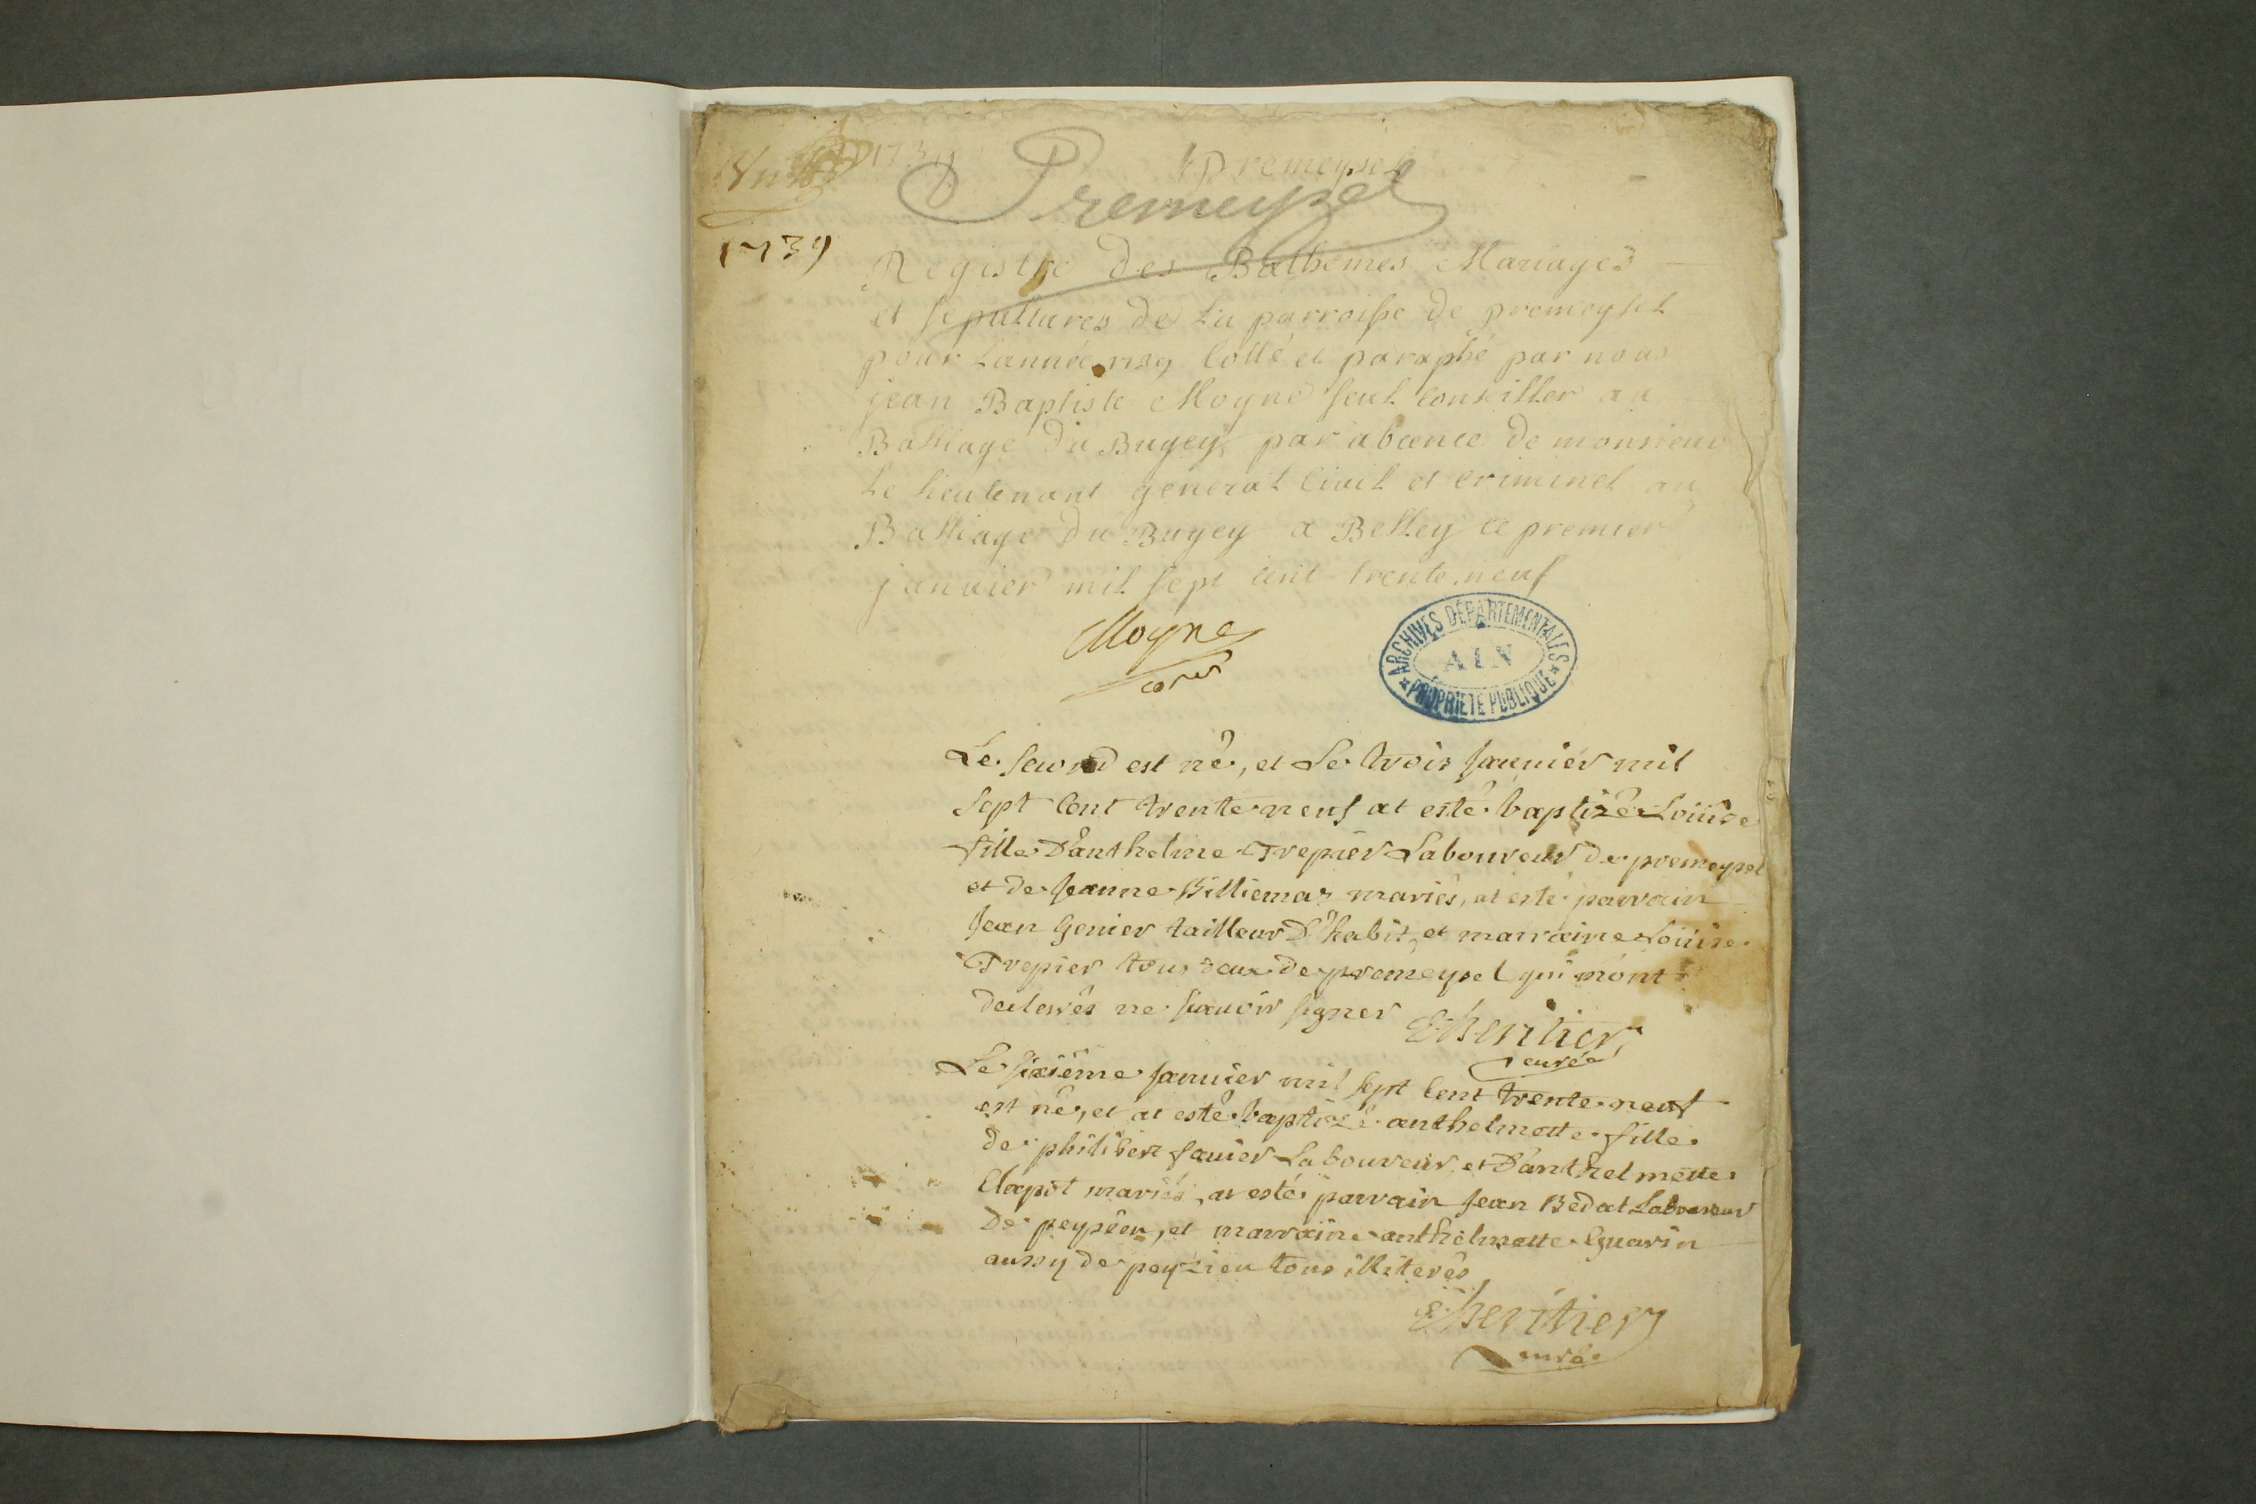 1739
Premeysel
Premeysel
1739
Registre des Bathêmes Mariages
et sepultures de La parroisse de premeysel
pour L'année 1739 Cotté et paraphé par nous
jean Baptiste Moyne seul conseiller au
Balliage du Bugey, par absence de monsieur
Le lieutenant general Civil et criminel au
Balliage du Bugey a Belley ce premier
janvier mil sept cent trente neuf
Moyne
coner
ARCHIVES DÉPARTEMENTALES
AIN
PROPRIÉTÉ PUBLIQUE
Le second est né, et Le trois Janvier mil
sept Cent trente neuf at esté baptizée Loüise
fille D'anthelme Trepier Laboureur de premeysel
et de Jeanne Billiemaz mariés, at esté parrain
Jean Genier tailleur D'habit, et marraine Loüise
Trepier tous deux de premeysel qui m'ont
declarés ne sçavoir signer
Lheritier
curée
Le sixiéme Janvier mil sept Cent trente neuf
est né, et at esté baptizé anthelmette fille
de philibert Janier Laboureur, et D'anthelmette
Clapot mariés, at esté parrain Jean Bedat Laboureur
De peyzieu, et marraine anthelmette Guarin
aussy de peyzieu tous illiterés
Lheritier
curé